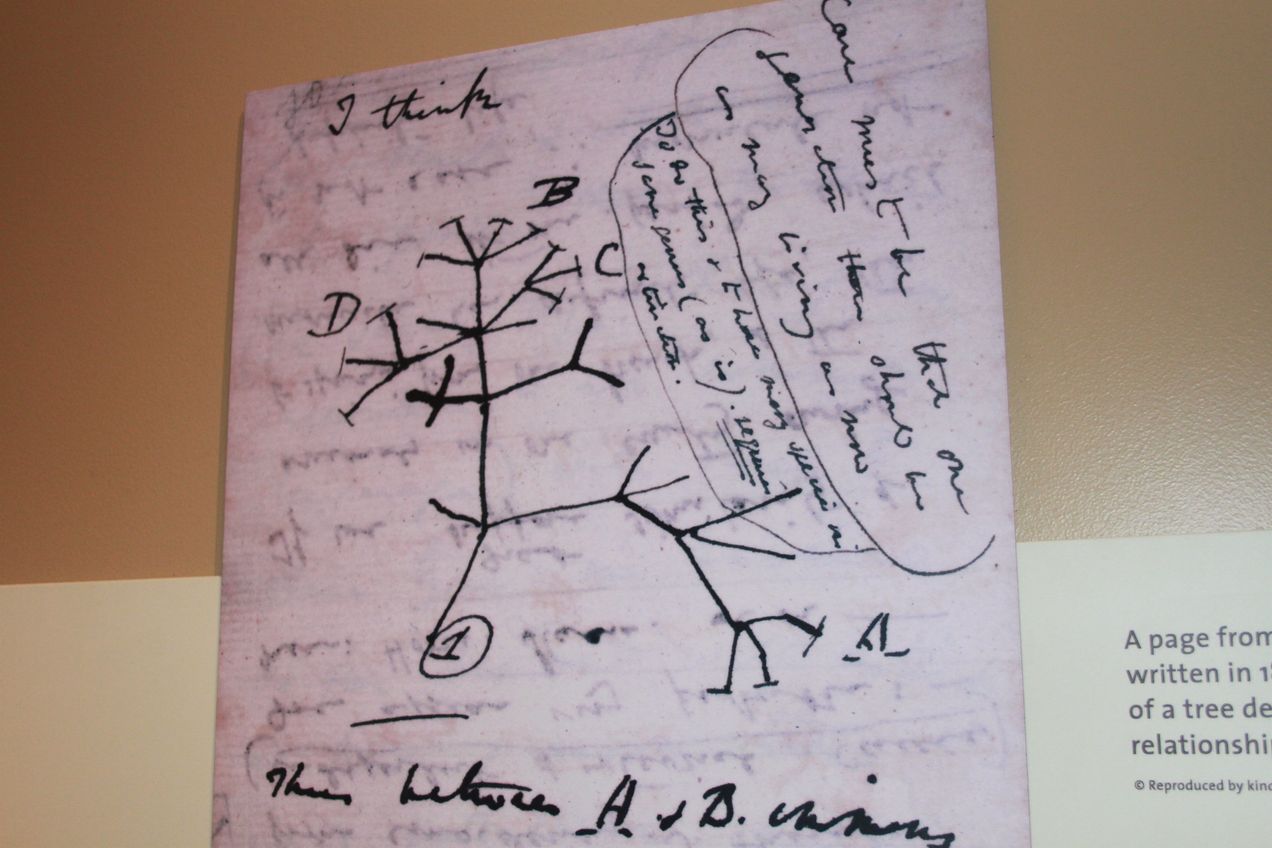 I think
Case must be that one
generation then should be
as many living as now
To do this & to have many species in
same genus (as is). requires
extinction.
B
C
D
A
1
Thus between A & B. immense
A page from
written in 18
of a tree de
relationshi
© Reproduced by kin